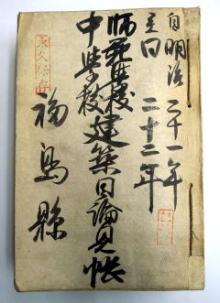 自明治二十一年
至同二十二年
師範学校
中学校建築目論見帳
福島縣
永久保存